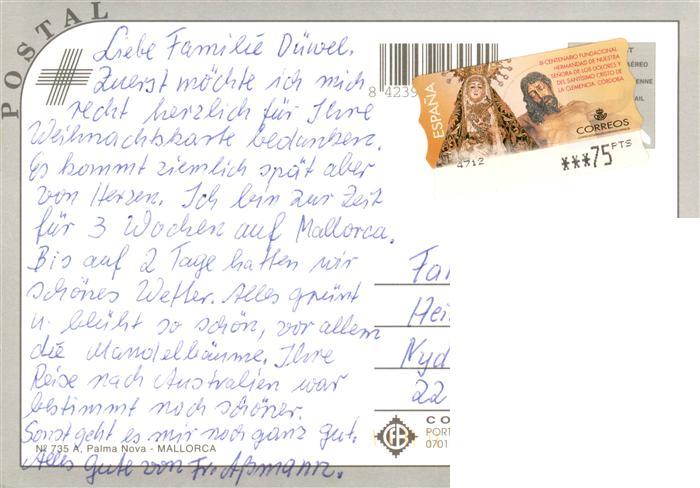 POSTAL
Liebe Familie Düwel.
Zuerst möchte ich mich
recht herzlich für Ihre
Weihnachtskarte bedanken.
Es kommt ziemlich spät aber
von Herzen. Ich bin zur Zeit
für 3 Wochen auf Mallorca.
Bis auf 2 Tage hatten wir
schönes Wetter. Alles grünt
u. blüht so schön, vor allem
die Mandelbäume. Ihre
Reise nach Australien war
bestimmt noch schöner.
Sonst geht es mir noch ganz gut.
Alles Gute von Fr. Aßmann.
Nº 735 A, Palma Nova - MALLORCA
8 4239
ESPAÑA
III CENTENARIO FUNDACIONAL
HERMANDAD DE NUESTRA
SEÑORA DE LOS DOLORES Y
DEL SANTISIMO CRISTO DE
LA CLEMENCIA. CORDOBA
CORREOS
4712
***75 PTS
T
AÉREO
ENNE
AIL
Fa
Hei
Nyd
22
CO
PORT
0701